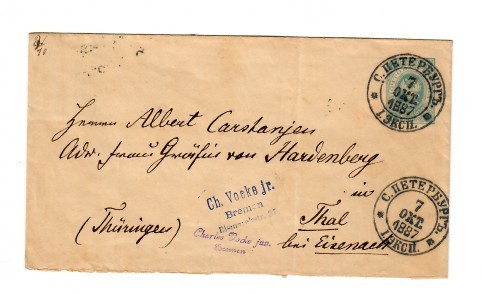 С. ПЕТЕРБУРГЪ.
7
ОКТ.
1887
1. ЭКСП.
Herrn Albert Carstanjen
Adr. Frau Gräfin von Hardenberg
in
Thal
bei Eisenach
(Thüringen)
Ch. Vocke jr.
Bremen
Charles Vocke jun.
Bremen
С. ПЕТЕРБУРГЪ.
7
ОКТ.
1887
1. ЭКСП.